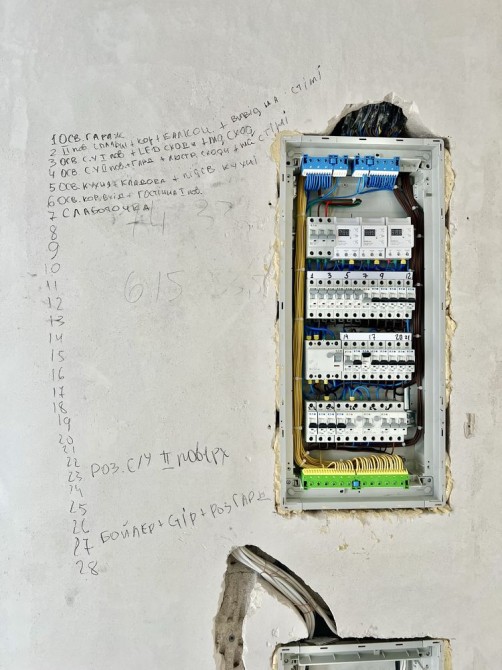 1 ОСВ. ГАРАЖ
2 II пов СПАЛЬНІ + КОР + БАЛКОН + ВИВІД НА СТІНІ
3 ОСВ. С.У I пов + LED СХОДИ + ПІД СХОД
4 ОСВ С У II пов + ГАРД + ЛЮСТРА СХОДИ + НА СТІНІ
5 ОСВ. КУХНЯ + КЛАДОВА + ПІДСВ КУХНІ
6 ОСВ. КОР. ВХІД + ГОСТИНА I пов
7 СЛАБОТОЧКА
8
9
10
11
12
13
14
15
16
17
18
19
20
21
22
23 РОЗ. С/У II поверх
24
25
26
27 БОЙЛЕР + GIP + РОЗ ГАРД
28
615
1 3 5 7 9 12
14 17 20 21